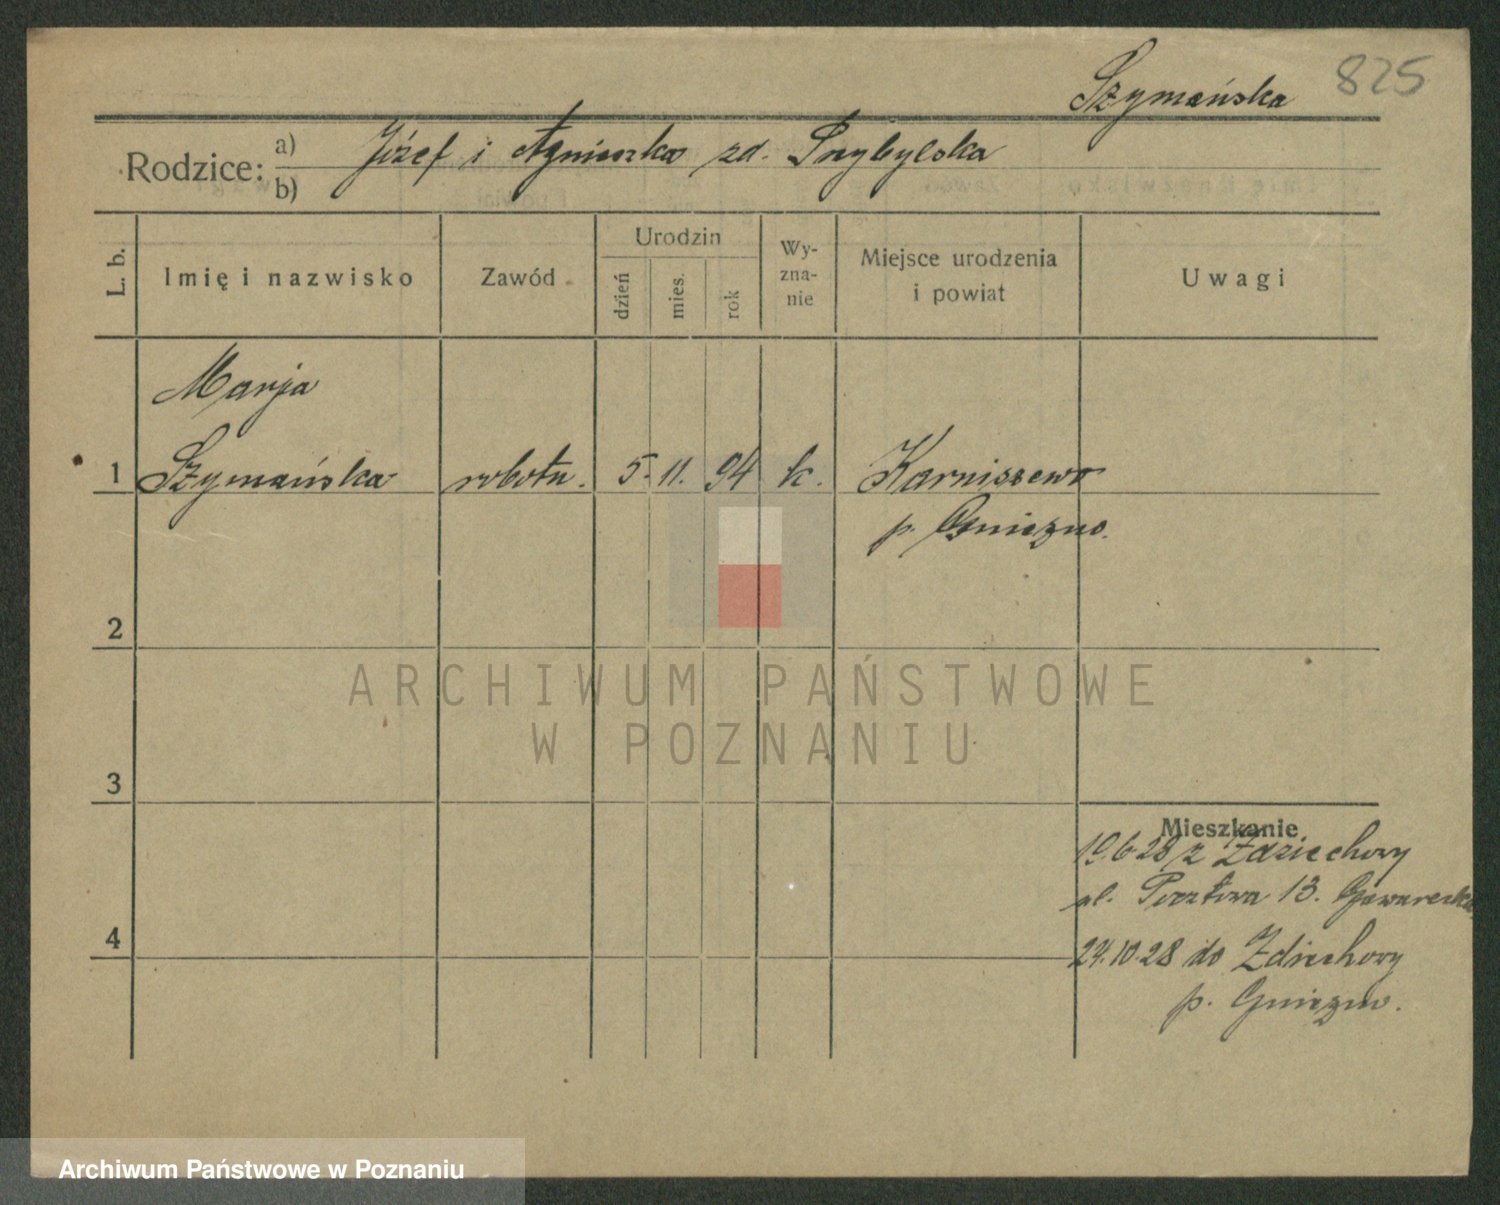 Szymańska 825
Rodzice: a) Józef i Agnieszka zd. Przybylska
b)
L. b.
Imię i nazwisko
Zawód
Urodzin
dzień
mies.
rok
Wy-
zna-
nie
Miejsce urodzenia
i powiat
Uwagi
Marja
1 Szymańska robotn. 5. 11. 94 k. Karniszewo
p. Gniezno.
2
ARCHIWUM PAŃSTWOWE
W POZNANIU
3
Mieszkanie
19.6 28 z Zdziechowy
ul. Pocztowa 13. Gawarecka
4
24.10.28 do Zdziechowy
p. Gniezno.
Archiwum Państwowe w Poznaniu